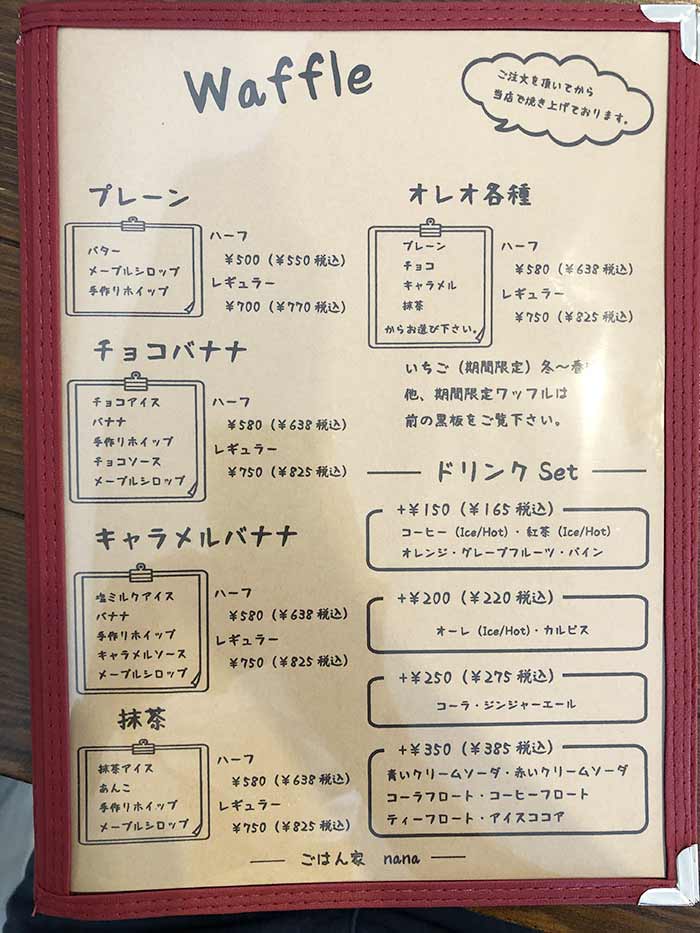 Waffle
ご注文を頂いてから
当店で焼き上げております。
プレーン
バター
メープルシロップ
手作りホイップ
ハーフ
￥500（￥550 税込）
レギュラー
￥700（￥770 税込）
チョコバナナ
チョコアイス
バナナ
手作りホイップ
チョコソース
メープルシロップ
ハーフ
￥580（￥638 税込）
レギュラー
￥750（￥825 税込）
キャラメルバナナ
塩ミルクアイス
バナナ
手作りホイップ
キャラメルソース
メープルシロップ
ハーフ
￥580（￥638 税込）
レギュラー
￥750（￥825 税込）
抹茶
抹茶アイス
あんこ
手作りホイップ
メープルシロップ
ハーフ
￥580（￥638 税込）
レギュラー
￥750（￥825 税込）
オレオ各種
プレーン
チョコ
キャラメル
抹茶
からお選び下さい。
ハーフ
￥580（￥638 税込）
レギュラー
￥750（￥825 税込）
いちご（期間限定）冬～春
他、期間限定ワッフルは
前の黒板をご覧下さい。
ドリンク Set
+￥150（￥165 税込）
コーヒー（Ice/Hot）・紅茶（Ice/Hot）
オレンジ・グレープフルーツ・パイン
+￥200（￥220 税込）
オーレ（Ice/Hot）・カルピス
+￥250（￥275 税込）
コーラ・ジンジャーエール
+￥350（￥385 税込）
青いクリームソーダ・赤いクリームソーダ
コーラフロート・コーヒーフロート
ティーフロート・アイスココア
ごはん家 nana